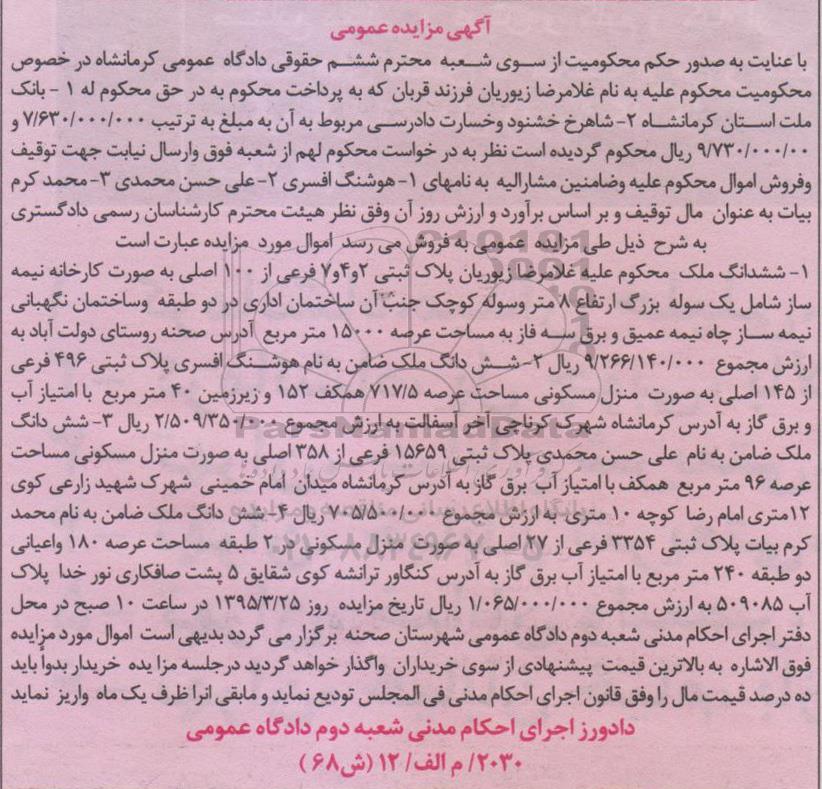 آگهی مزایده عمومی
با عنایت به صدور حکم محکومیت از سوی شعبه محترم ششم حقوقی دادگاه عمومی کرمانشاه در خصوص
محکومیت محکوم علیه به نام غلامرضا زیوریان فرزند قربان که به پرداخت محکوم به در حق محکوم له ۱ - بانک
ملت استان کرمانشاه ۲- شاهرخ خشنود وخسارت دادرسی مربوط به آن به مبلغ به ترتیب ۷/۶۳۰/۰۰۰/۰۰۰ و
۹/۷۳۰/۰۰۰/۰۰ ریال محکوم گردیده است نظر به در خواست محکوم لهم از شعبه فوق وارسال نیابت جهت توقیف
وفروش اموال محکوم علیه وضامنین مشارالیه به نامهای ۱- هوشنگ افسری ۲- علی حسن محمدی ۳- محمد کرم
بیات به عنوان مال توقیف و بر اساس برآورد و ارزش روز آن وفق نظر هیئت محترم کارشناسان رسمی دادگستری
به شرح ذیل طی مزایده عمومی به فروش می رسد اموال مورد مزایده عبارت است
۱- ششدانگ ملک محکوم علیه غلامرضا زیوریان پلاک ثبتی ۲و۴و۷ فرعی از ۱۰۰ اصلی به صورت کارخانه نیمه
ساز شامل یک سوله بزرگ ارتفاع ۸ متر وسوله کوچک جنب آن ساختمان اداری در دو طبقه وساختمان نگهبانی
نیمه ساز چاه نیمه عمیق و برق سه فاز به مساحت عرصه ۱۵۰۰۰ متر مربع آدرس صحنه روستای دولت آباد به
ارزش مجموع ۹/۲۶۶/۱۴۰/۰۰۰ ریال ۲- شش دانگ ملک ضامن به نام هوشنگ افسری پلاک ثبتی ۴۹۶ فرعی
از ۱۴۵ اصلی به صورت منزل مسکونی مساحت عرصه ۷۱۷/۵ همکف ۱۵۲ و زیرزمین ۴۰ متر مربع با امتیاز آب
و برق گاز به آدرس کرمانشاه شهرک کرناچی آخر آسفالت به ارزش مجموع ۲/۵۰۹/۳۵۰/۰۰۰ ریال ۳- شش دانگ
ملک ضامن به نام علی حسن محمدی پلاک ثبتی ۱۵۶۵۹ فرعی از ۳۵۸ اصلی به صورت منزل مسکونی مساحت
عرصه ۹۶ متر مربع همکف با امتیاز آب برق گاز به آدرس کرمانشاه میدان امام خمینی شهرک شهید زارعی کوی
۱۲متری امام رضا کوچه ۱۰ متری به ارزش مجموع ۷۰۵/۵۰۰/۰۰۰ ریال ۴- شش دانگ ملک ضامن به نام محمد
کرم بیات پلاک ثبتی ۳۳۵۴ فرعی از ۲۷ اصلی به صورت منزل مسکونی در ۲ طبقه مساحت عرصه ۱۸۰ واعیانی
دو طبقه ۲۴۰ متر مربع با امتیاز آب برق گاز به آدرس کنگاور ترانشه کوی شقایق ۵ پشت صافکاری نور خدا پلاک
آب ۵۰۹۰۸۵ به ارزش مجموع ۱/۰۶۵/۰۰۰/۰۰۰ ریال تاریخ مزایده روز ۱۳۹۵/۳/۲۵ در ساعت ۱۰ صبح در محل
دفتر اجرای احکام مدنی شعبه دوم دادگاه عمومی شهرستان صحنه برگزار می گردد بدیهی است اموال مورد مزایده
فوق الاشاره به بالاترین قیمت پیشنهادی از سوی خریداران واگذار خواهد گردید درجلسه مزا یده خریدار بدواً باید
ده درصد قیمت مال را وفق قانون اجرای احکام مدنی فی المجلس تودیع نماید و مابقی انرا ظرف یک ماه واریز نماید
دادورز اجرای احکام مدنی شعبه دوم دادگاه عمومی
۲۰۳۰/ م الف/ ۱۲ (ش۶۸ )
ParsNamadData